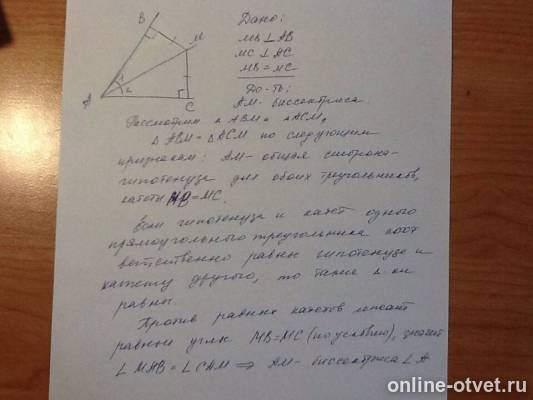 B
M
A
1
2
C
Дано:
MB ⊥ AB
MC ⊥ AC
MB = MC
До-ть:
AM - биссектриса
Рассмотрим △ ABM и △ ACM,
△ ABM = △ ACM по следующим
признакам: AM - общая сторона-
гипотенуза для обоих треугольников,
катеты MB = MC.
Если гипотенуза и катет одного
прямоугольного треугольника соот
ветственно равны гипотенузе и
катету другого, то такие △-ки
равны.
Против равных катетов лежат
равные углы MB = MC (по условию), значит
∠ MAB = ∠ CAM ⇒ AM - биссектриса ∠ A
online-otvet.ru